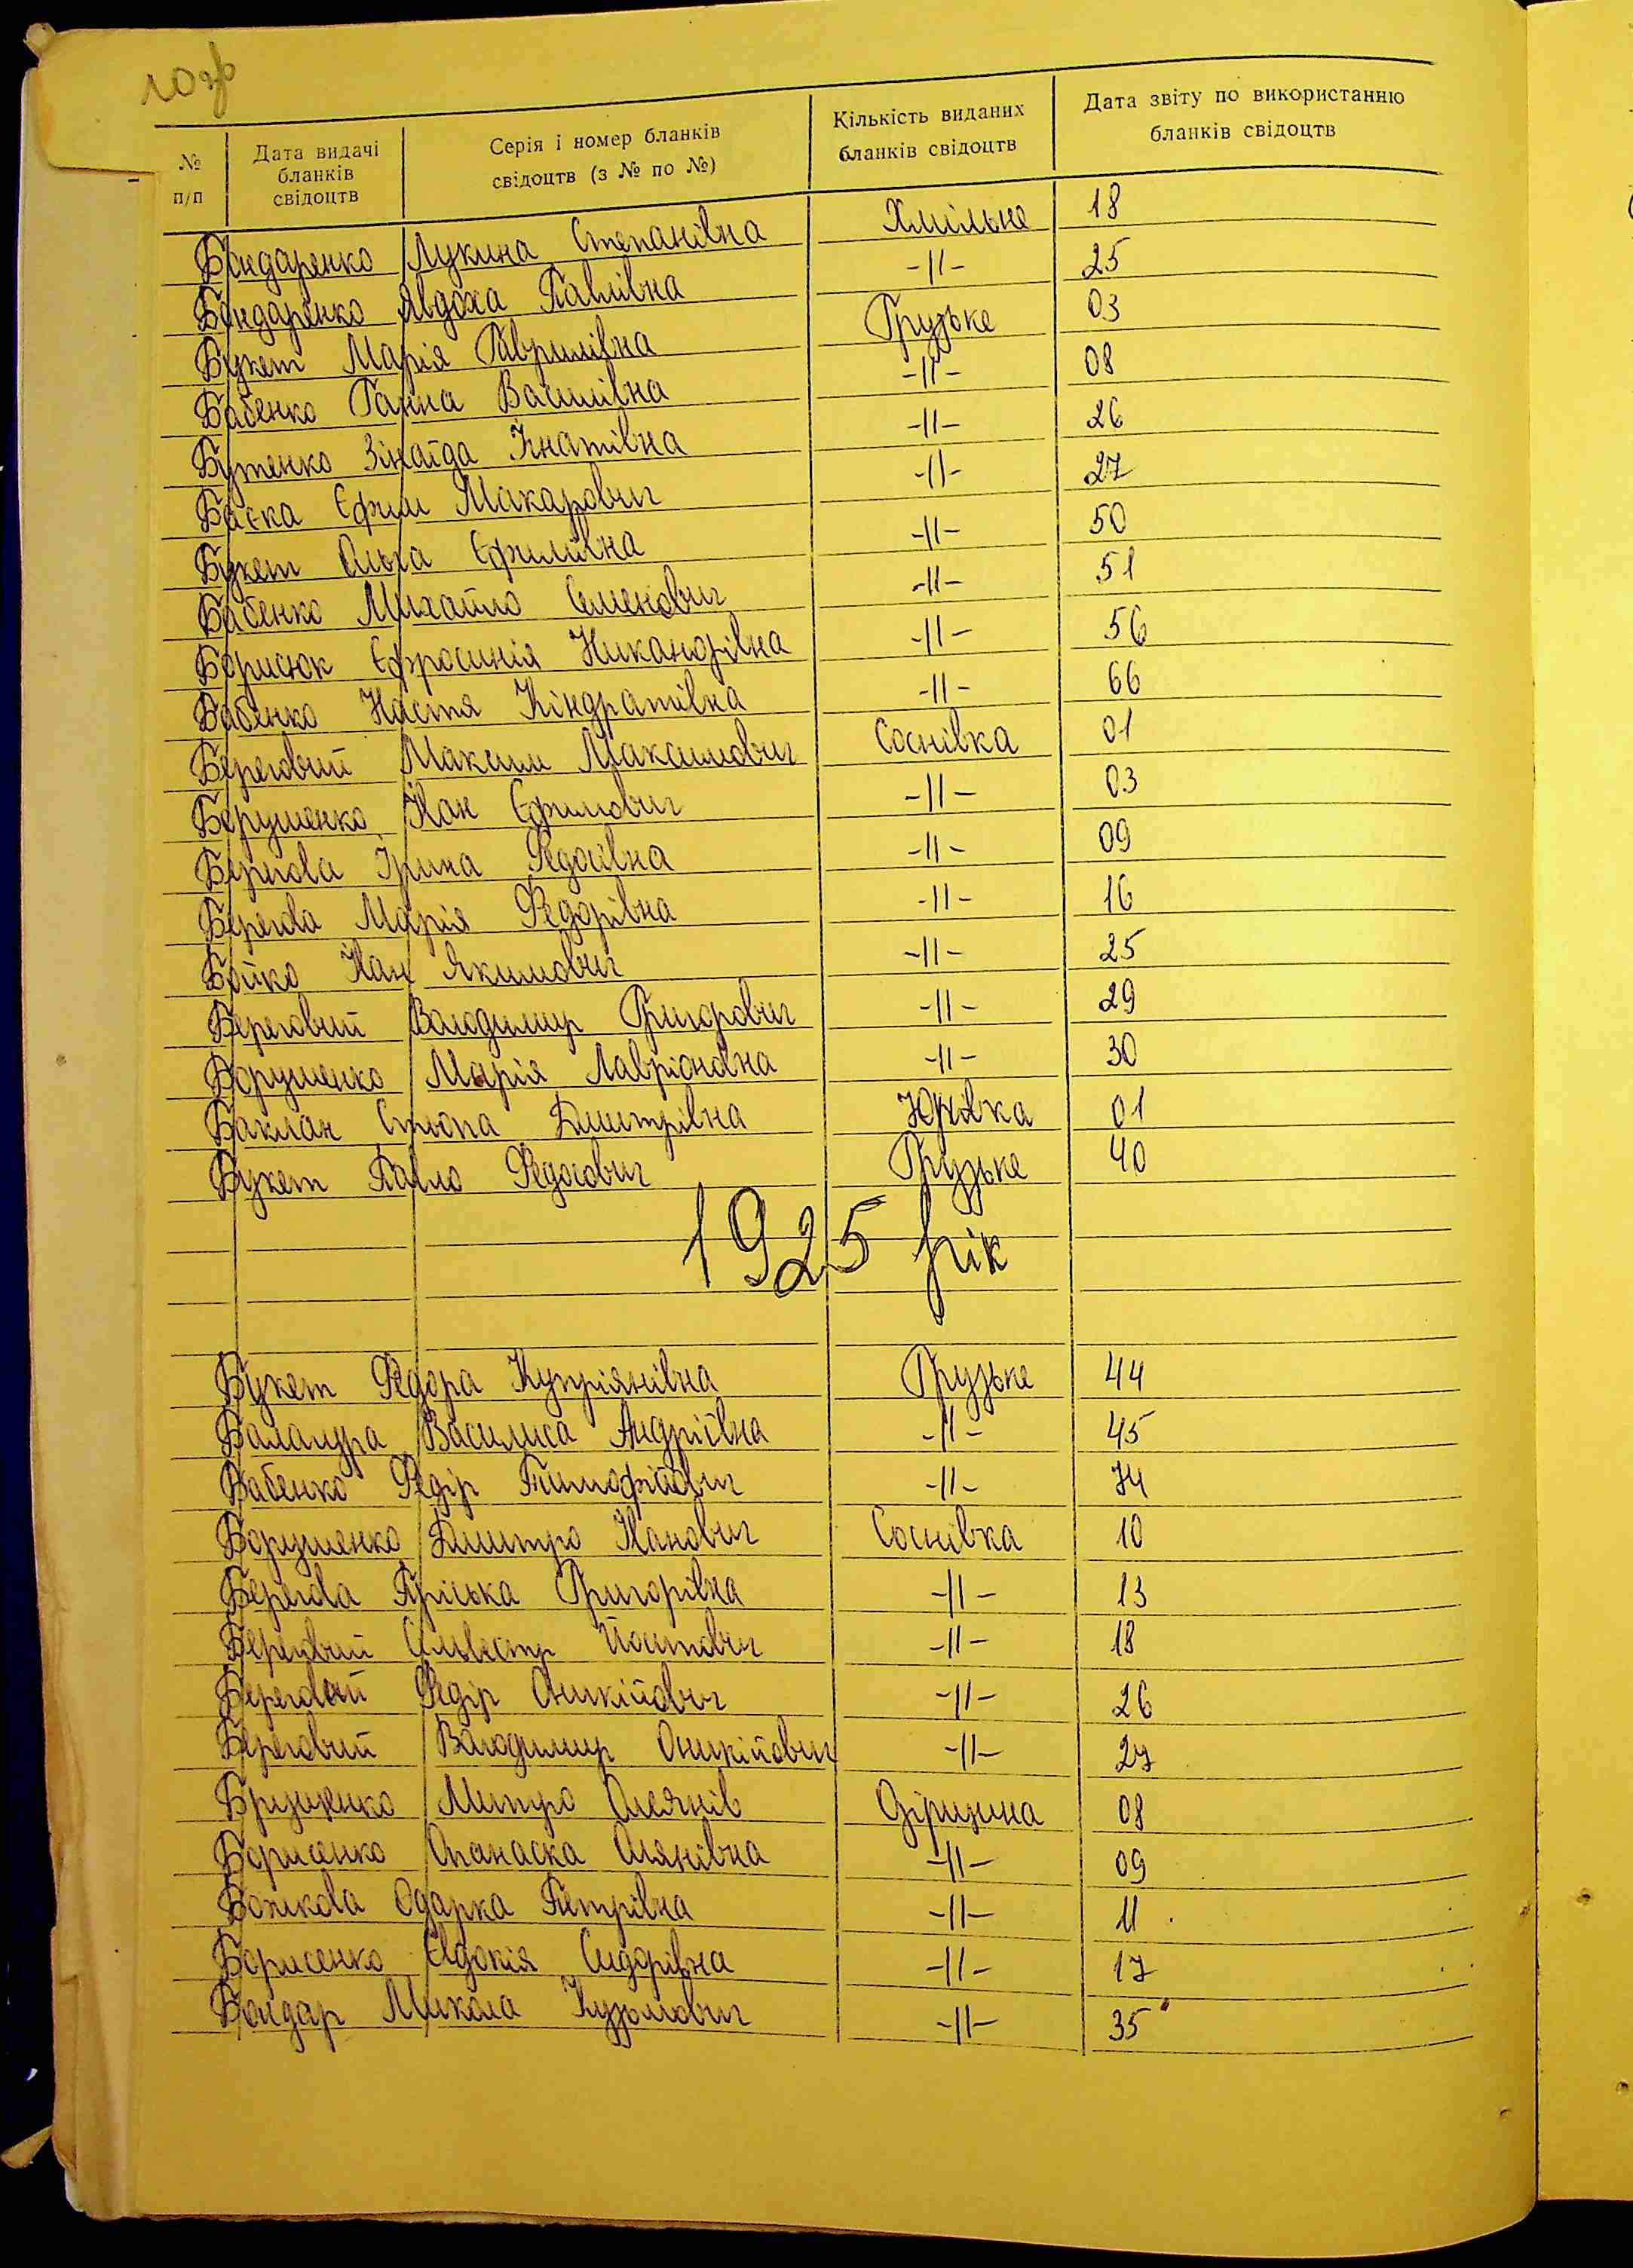 10 зв
№ п/п Дата видачі бланків свідоцтв Серія і номер бланків свідоцтв (з № по №) Кількість виданих бланків свідоцтв Дата звіту по використанню бланків свідоцтв
Бондаренко Лукина Степанівна Хмільне 18
Бондаренко Явдоха Павлівна -||- 25
Букет Марія Гаврилівна Грузьке 03
Бабенко Ганна Василівна -||- 08
Бутенко Зінаїда Ігнатівна -||- 26
Баєка Єфим Макарович -||- 27
Букет Ольга Єфимівна -||- 50
Бабенко Михайло Семенович -||- 51
Борисюк Єфросинія Никандрівна -||- 56
Бабенко Настя Кіндратівна -||- 66
Береговий Максим Максимович Соснівка 01
Борушенко Іван Єфимович -||- 03
Берегова Ірина Федосівна -||- 09
Берегова Марія Федорівна -||- 16
Бойко Іван Якимович -||- 25
Береговий Володимир Григорович -||- 29
Борушенко Марія Лавріонівна -||- 30
Баклан Стьопа Дмитрівна Юрівка 01
Букет Павло Федосович Грузьке 40
1925 рік
Букет Федора Купріянівна Грузьке 44
Балацура Василиса Андріївна -||- 45
Бабенко Федір Тимофійович -||- 74
Борушенко Дмитро Іванович Соснівка 10
Берегова Пріська Григорівна -||- 13
Береговий Сильвестр Йостович -||- 18
Береговий Федір Оникійович -||- 26
Береговий Володимир Оникійович -||- 27
Митро Дірицина 08
Борисенко Опанаска -||- 09
Божкова Одарка Петрівна -||- 11
Борисенко Євдокія Сидорівна -||- 17
Бондар Микола Кузьмович -||- 35